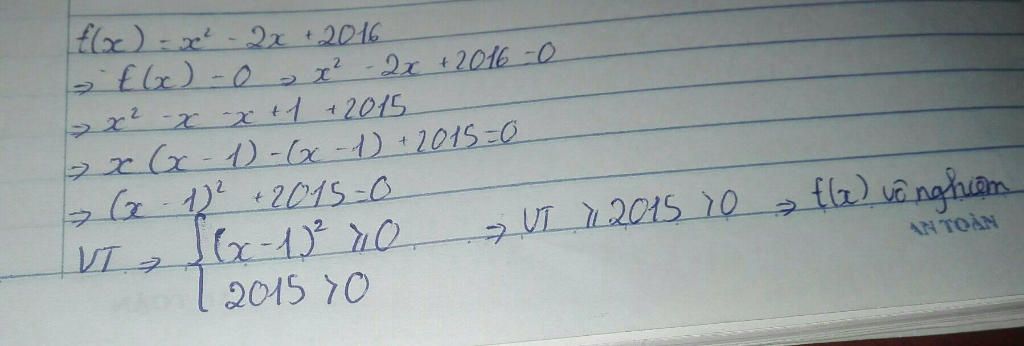 f(x) = x² - 2x + 2016
⇒ f(x) = 0 ⇒ x² - 2x + 2016 = 0
⇒ x² - x - x + 1 + 2015
⇒ x (x - 1) - (x - 1) + 2015 = 0
⇒ (x - 1)² + 2015 = 0
VT ⇒ { (x - 1)² ≥ 0 ⇒ VT ≥ 2015 > 0 ⇒ f(x) vô nghiệm
2015 > 0
AN TOÀN